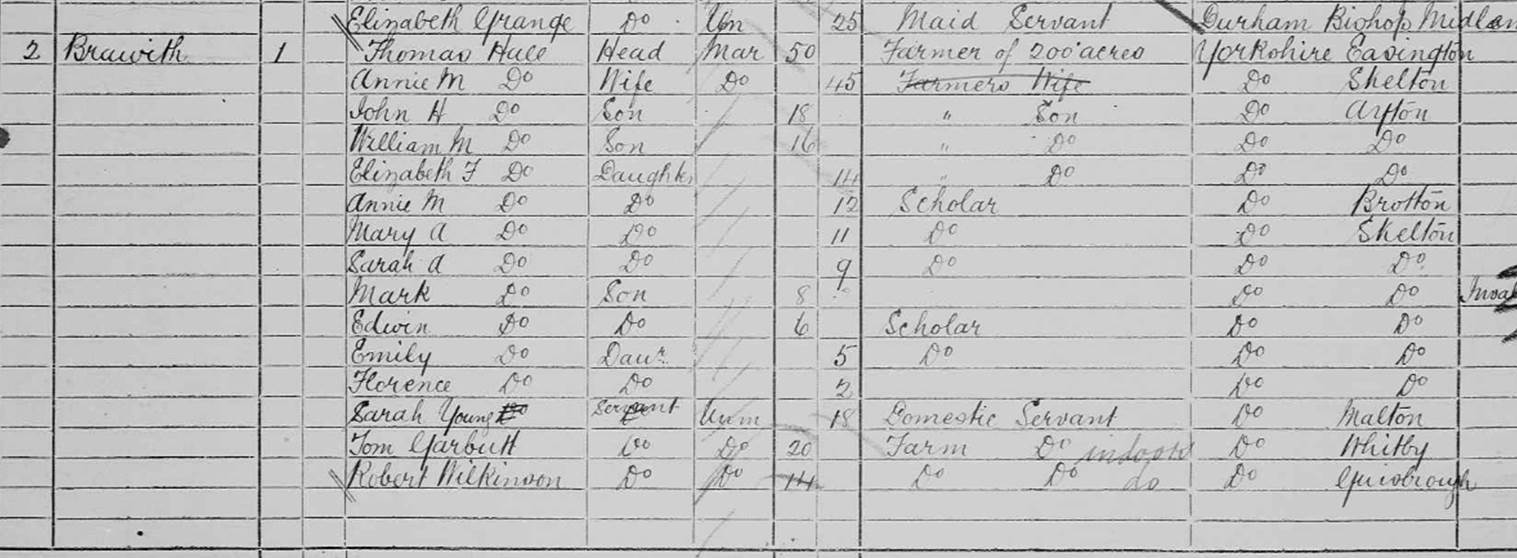 Elizabeth Grange Do Un 25 Maid Servant Durham Bishop Midlam
2 Brawith 1 Thomas Hall Head Mar 50 Farmer of 200 acres Yorkshire Easington
Annie M Do Wife Do 45 Farmers Wife Do Skelton
John H Do Son 18 " Son Do Ayton
William M Do Son 16 " Do Do Do
Elizabeth F Do Daughter 14 " Do Do Do
Annie M Do Do 12 Scholar Do Brotton
Mary A Do Do 11 Do Do Skelton
Sarah A Do Do 9 Do Do Do
Mark Do Son 8 Do Do Inval
Edwin Do Do 6 Scholar Do Do
Emily Do Daur 5 Do Do Do
Florence Do Do 2 Do Do
Sarah Young Do Servant Unm 18 Domestic Servant Do Malton
Tom Garbutt Do Do 20 Farm Do indoors Do Whitby
Robert Wilkinson Do Do 14 Do Do do Do Guisbrough